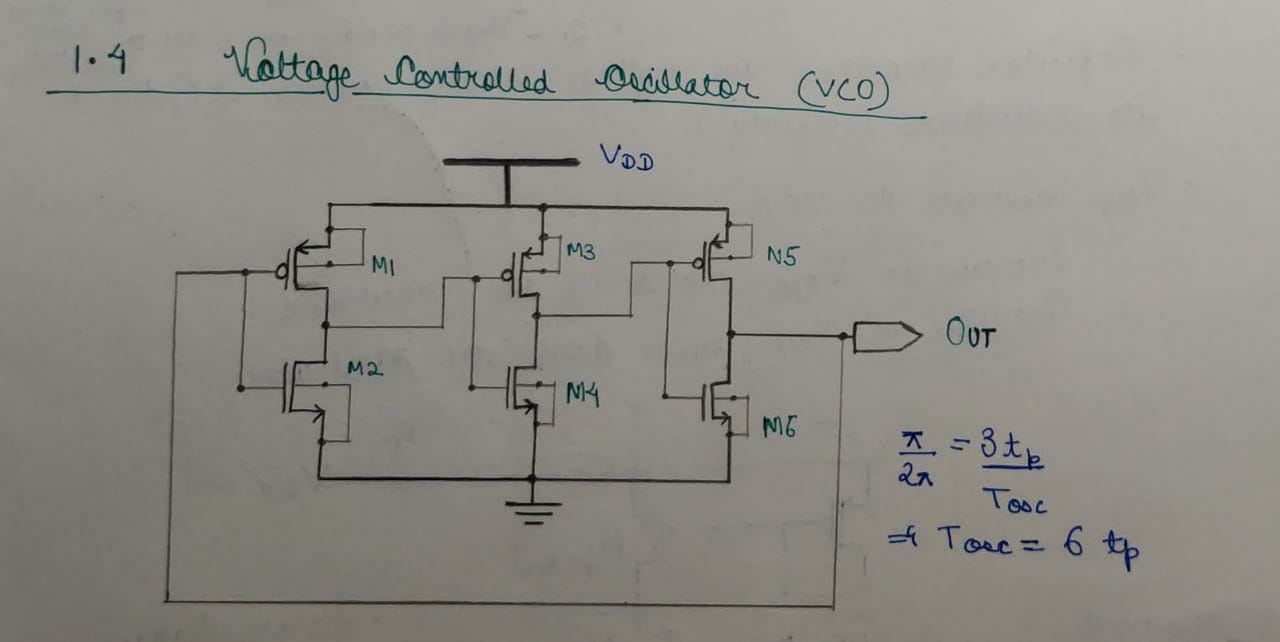 1.4 Voltage Controlled Oscillator (VCO)
VDD
M1
M3
N5
M2
M4
M6
OUT
π/2π = 3tp/Tosc
⇒ Tosc = 6 tp